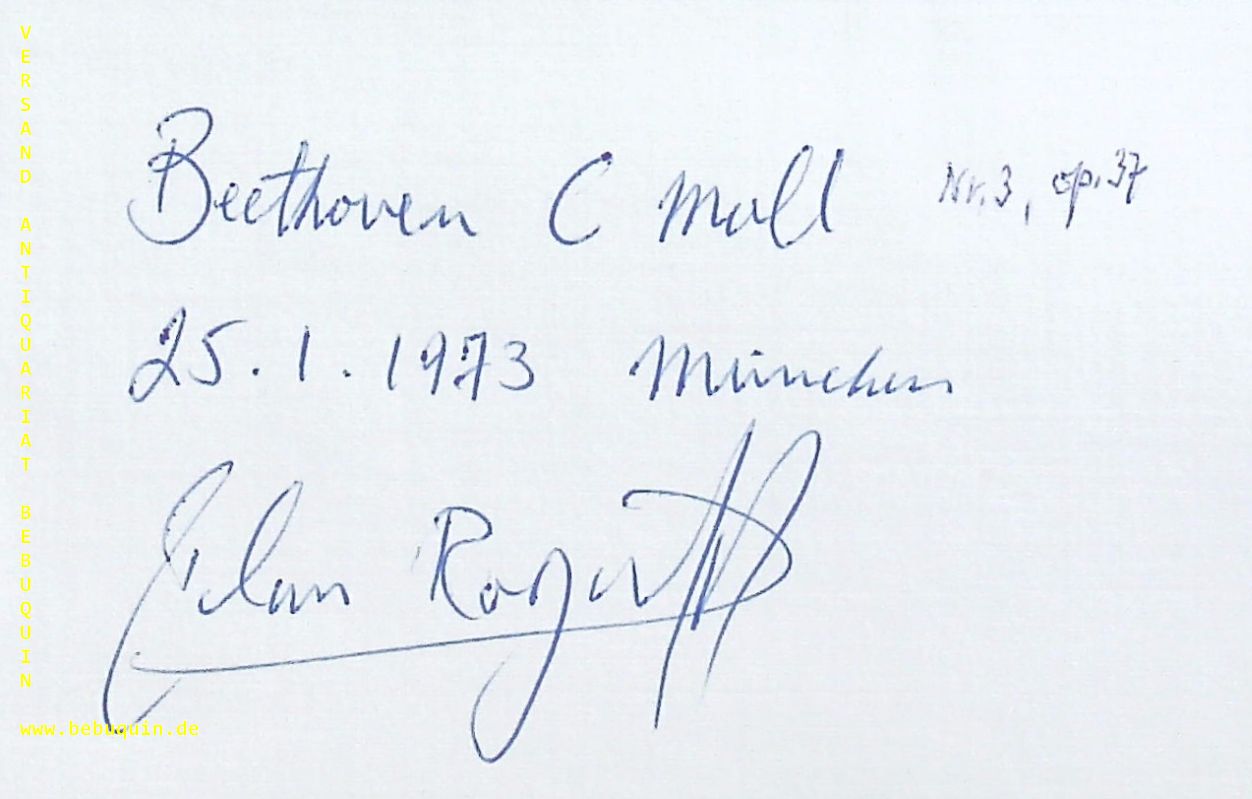 Beethoven C Moll Nr. 3, op. 37
25. 1. 1973 München
Ilan Rogoff
VERSAND ANTIQUARIAT BEBUQUIN
www.bebuquin.de